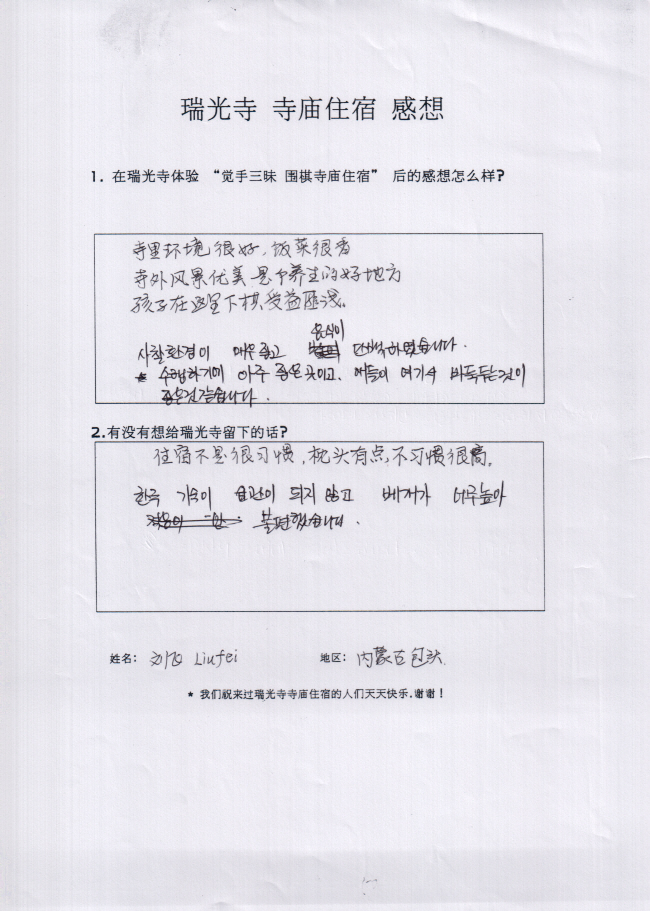 瑞光寺 寺庙住宿 感想
1. 在瑞光寺体验 “觉手三昧 围棋寺庙住宿” 后的感想怎么样?
寺里环境很好，饭菜很香
寺外风景优美 是个养生的好地方
孩子在这里下棋，受益匪浅。
음식이
사찰환경이 매우좋고 단백하였습니다.
* 수행하기에 아주 좋은곳이고, 애들이 여기서 바둑두는것이
좋은것같습니다.
2.有没有想给瑞光寺留下的话?
住宿不是很习惯，枕头有点不习惯很高。
한국 기숙이 습관이 되지 않고 베개가 너무높아
불편했습니다.
姓名: 刘飞 Liufei 地区: 内蒙古包头.
* 我们祝来过瑞光寺寺庙住宿的人们天天快乐.谢谢!